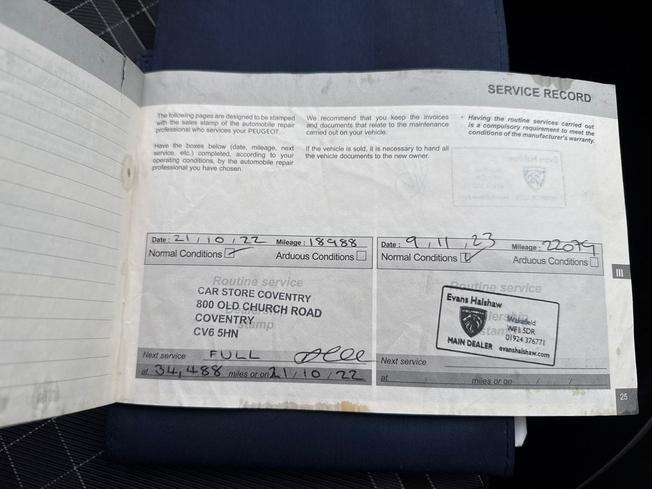 SERVICE RECORD
The following pages are designed to be stamped
with the sales stamp of the automobile repair
professional who services your PEUGEOT.
Have the boxes below (date, mileage, next
service, etc.) completed, according to your
operating conditions, by the automobile repair
professional you have chosen.
We recommend that you keep the invoices
and documents that relate to the maintenance
carried out on your vehicle.
If the vehicle is sold, it is necessary to hand all
the vehicle documents to the new owner.
• Having the routine services carried out
is a compulsory requirement to meet the
conditions of the manufacturer's warranty.
Date : 21 / 10 / 22 Mileage : 18988
Normal Conditions Arduous Conditions
Routine service
CAR STORE COVENTRY
800 OLD CHURCH ROAD
COVENTRY
stamp
CV6 5HN
Next service FULL
at 34,488 miles or on 21 / 10 / 22
Date : 9 , 11 , 23 Mileage : 22079
Normal Conditions Arduous Conditions
Routine service
Evans Halshaw
Wakefield
WF1 5DR
01924 376771
MAIN DEALER evanshalshaw.com
Next service
at miles or on / /
III
25